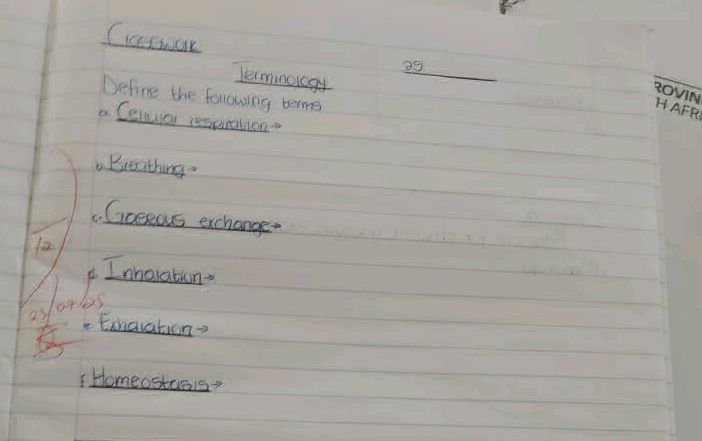 Classwork
25
Terminology
Define the following terms
a. Cellular respiration→
b. Breathing→
c. Gaseous exchange→
d. Inhalation→
e. Exhalation→
f. Homeostasis→
12
25/07/25
ROVIN
H AFRI